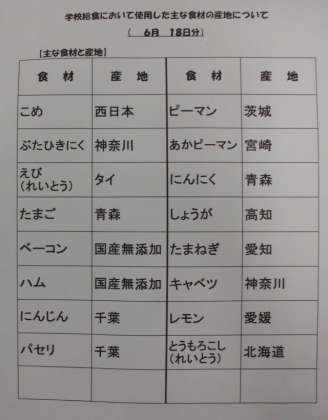 学校給食において使用した主な食材の産地について
( 6月 18日分)
[主な食材と産地]
食 材 産 地 食 材 産 地
こめ 西日本 ピーマン 茨城
ぶたひきにく 神奈川 あかピーマン 宮崎
えび
(れいとう) タイ にんにく 青森
たまご 青森 しょうが 高知
ベーコン 国産無添加 たまねぎ 愛知
ハム 国産無添加 キャベツ 神奈川
にんじん 千葉 レモン 愛媛
パセリ 千葉 とうもろこし
(れいとう) 北海道